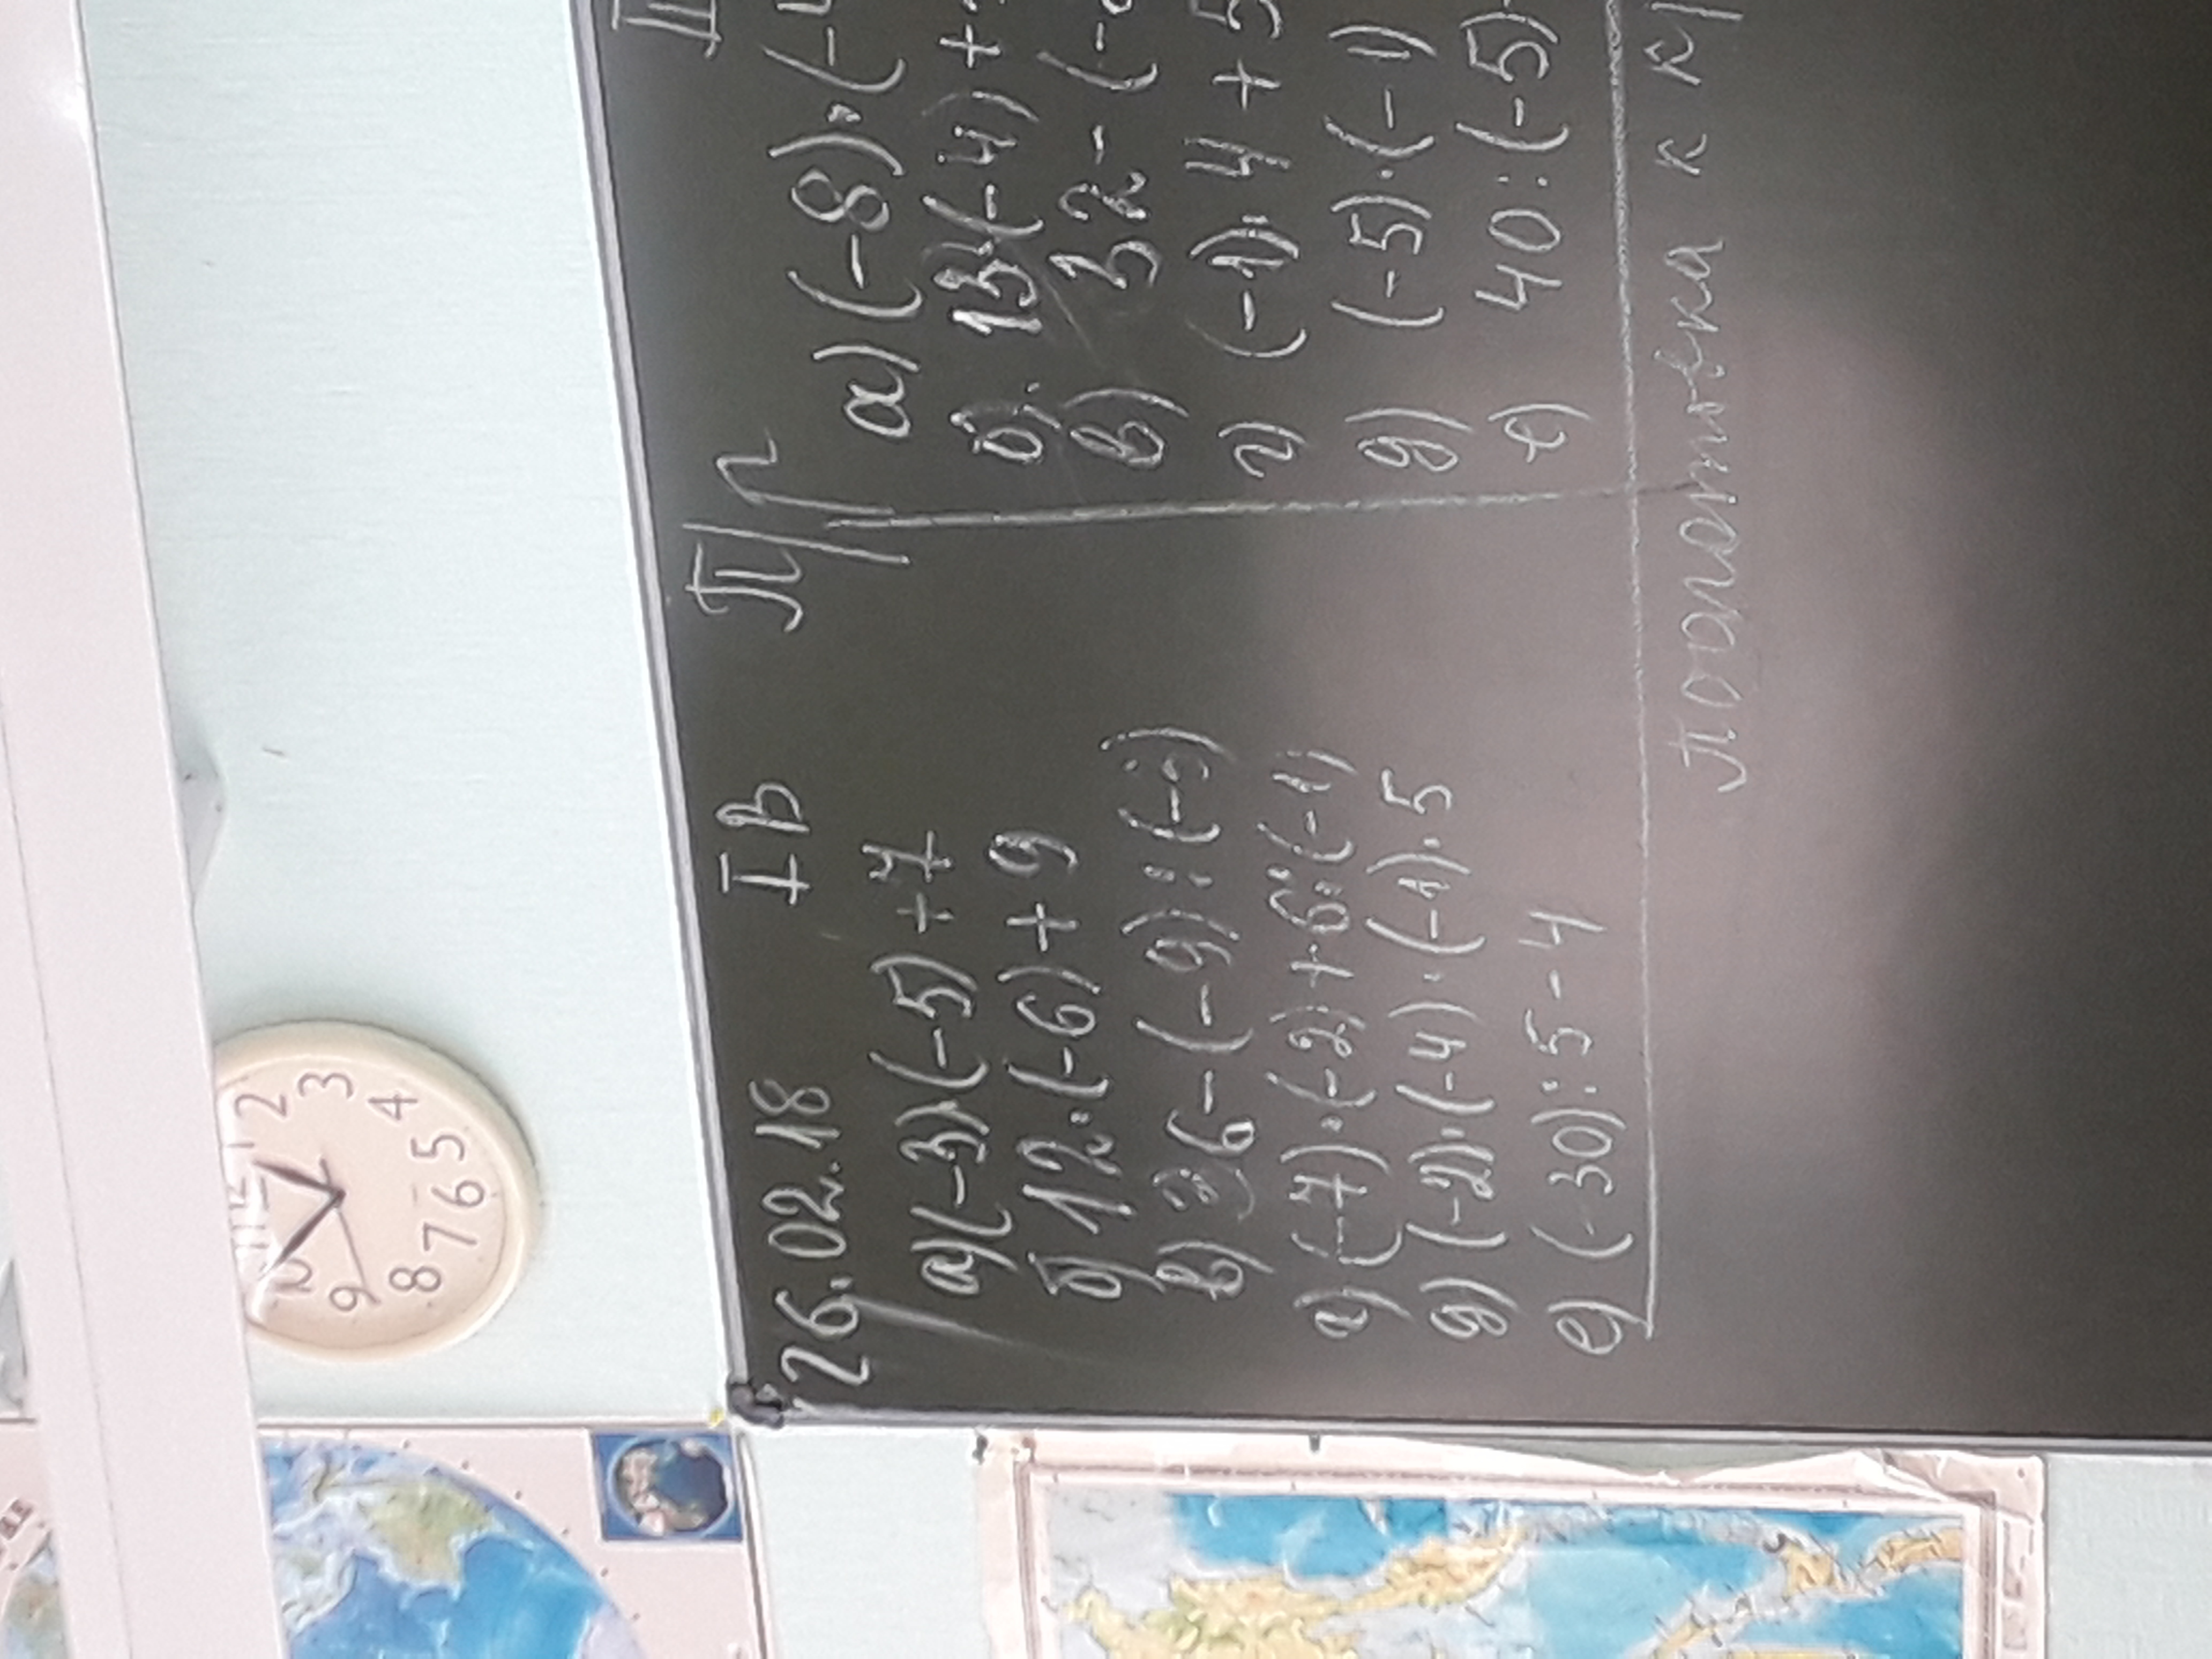 26.02.18 I В П/р
а) (-3)·(-5)+7
б) 12·(-6)+9
в) 36-(-9):(-3)
г) (-7)·(-2)+6·(-1)
д) (-2)·(-4)·(-1)·5
е) (-30):5-4
а) (-8)·(-
б) 13·(-4)+
в) 32-(-
г) (-1)·4+5
д) (-5)·(-1)
е) 40:(-5)
Подготовка к К/
12
1
2
3
4
5
6
7
8
9
10
11